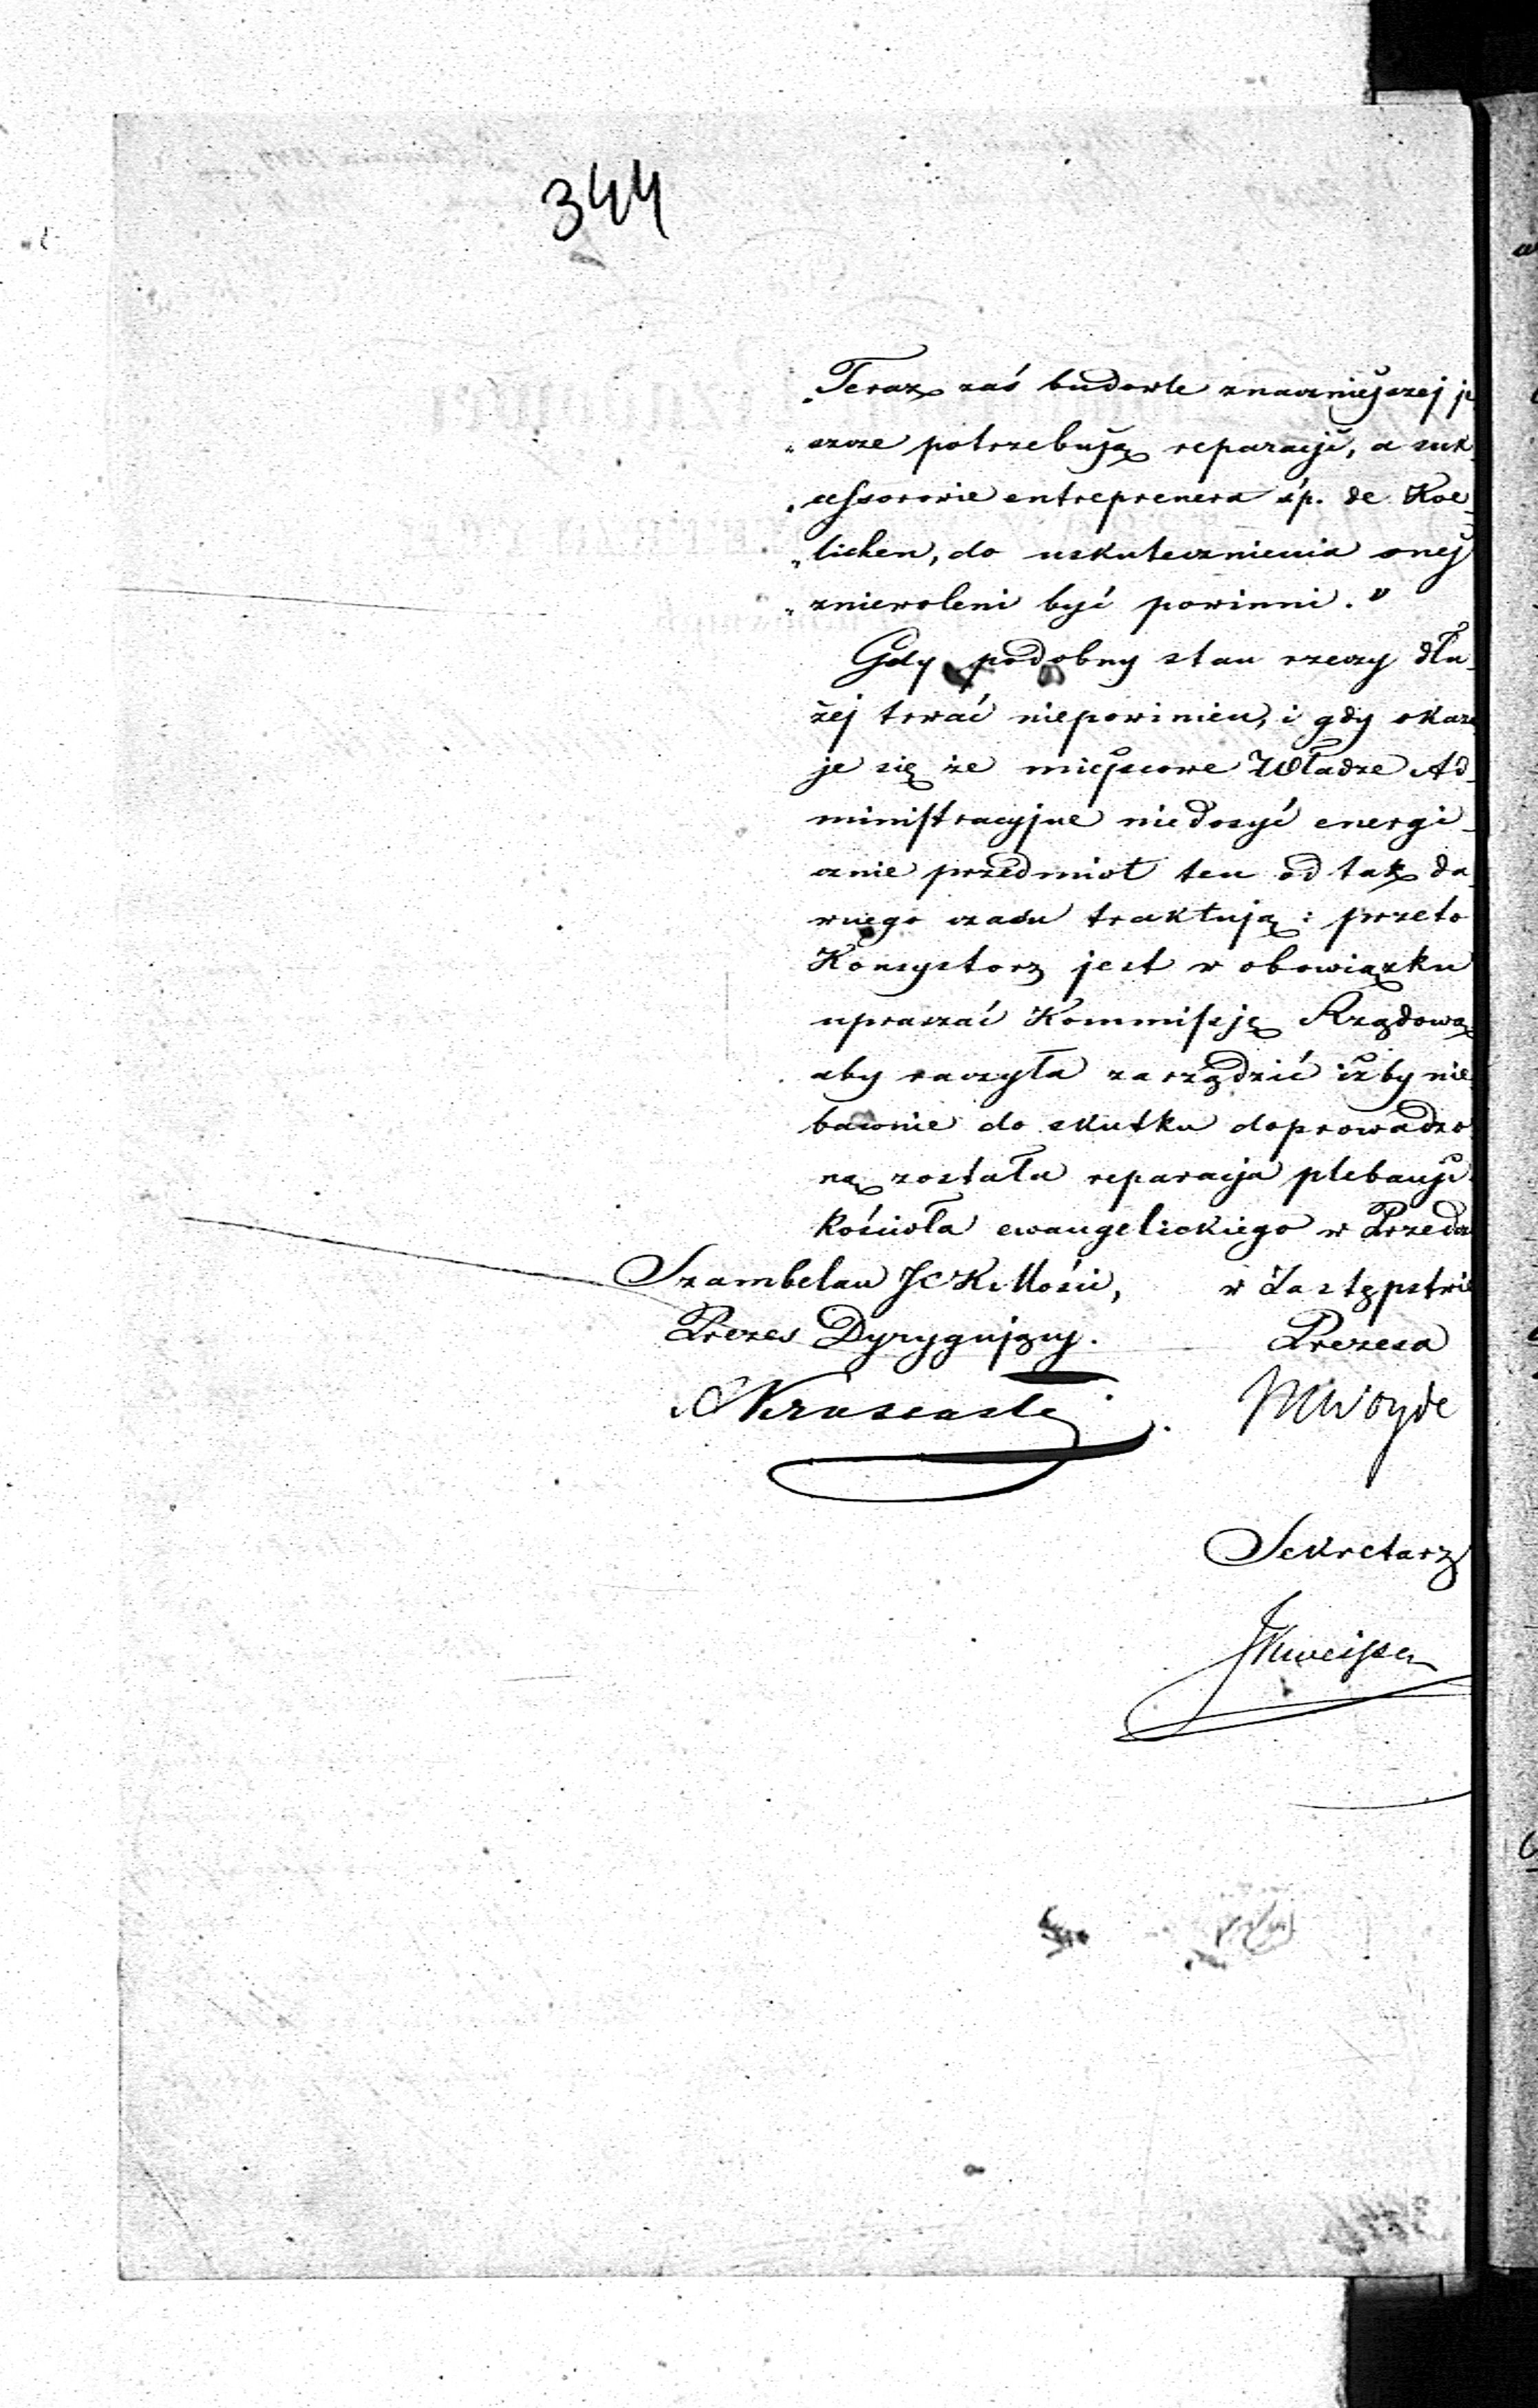 344
„Teraz zaś budowle znaczniejszej je
„szcze potrzebują reparacji, a suk
„cessorowie entreprenera śp. de Koe
„lichen, do uskutecznienia onej
„zniewoleni być powinni."
Gdy podobny stan rzeczy dłu
żej trwać niepowinien, i gdy okazu
je się że miejscowe Władze Ad
ministracyjne niedosyć energi
cznie przedmiot ten od tak da
wnego czasu traktują: przeto
Konsystorz jest w obowiązku
upraszać Kommissję Rządową
aby raczyła zarządzić iżby nie
bawnie do skutku doprowadzo
ną została reparacja plebanji
kościoła ewangelickiego w Przede
Szambelan JCKMości, w Zastępstwie
Prezes Dyrygujący. Prezesa
Woyde
Sekretarz